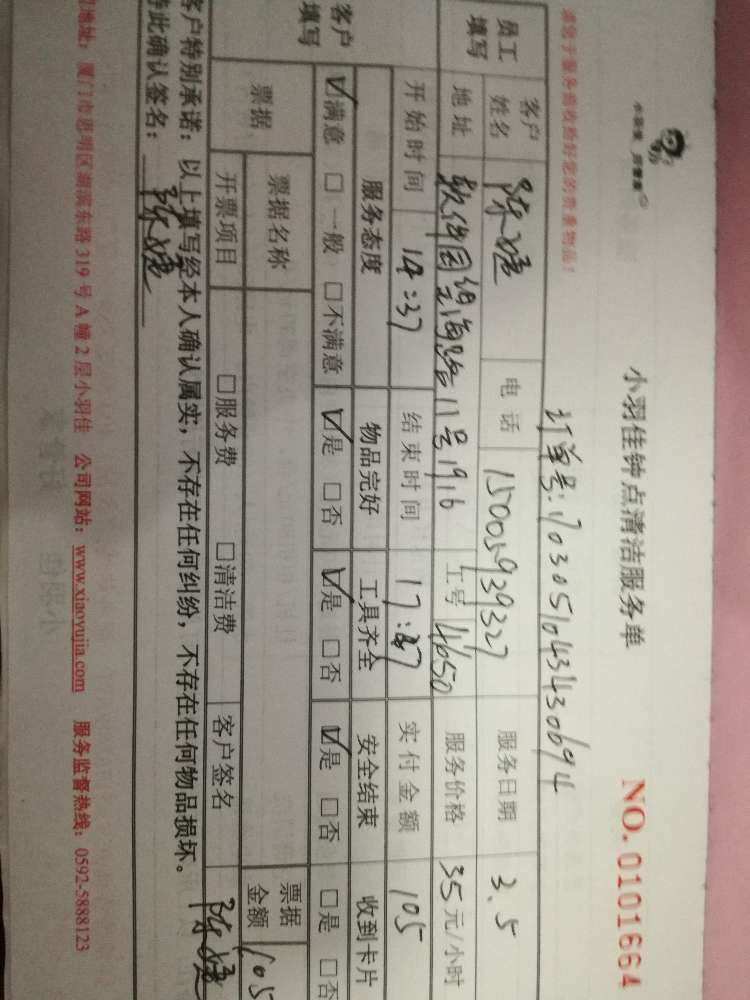 小羽佳 好管家
小羽佳钟点清洁服务单 NO. 0101664
订单号:170305104343430694
员工填写 客户姓名 电话 15005939327 服务日期 3.5
地址 软件园观海路11号1916 工号 4650 服务价格 35元/小时
开始时间 14:37 结束时间 17:37 实付金额 105
客户填写 服务态度 物品完好 工具齐全 安全结束 收到卡片
☑满意 □一般 □不满意 ☑是 □否 ☑是 □否 ☑是 □否 □是 □否
票据 票据名称 票据金额 105
开票项目 □服务费 □清洁费 客户签名
客户特别承诺:以上填写经本人确认属实,不存在任何纠纷,不存在任何物品损坏。
特此确认签名:
地址:厦门市思明区湖滨东路319号A幢2层小羽佳 公司网站:www.xiaoyujia.com 服务监督热线:0592-5888123